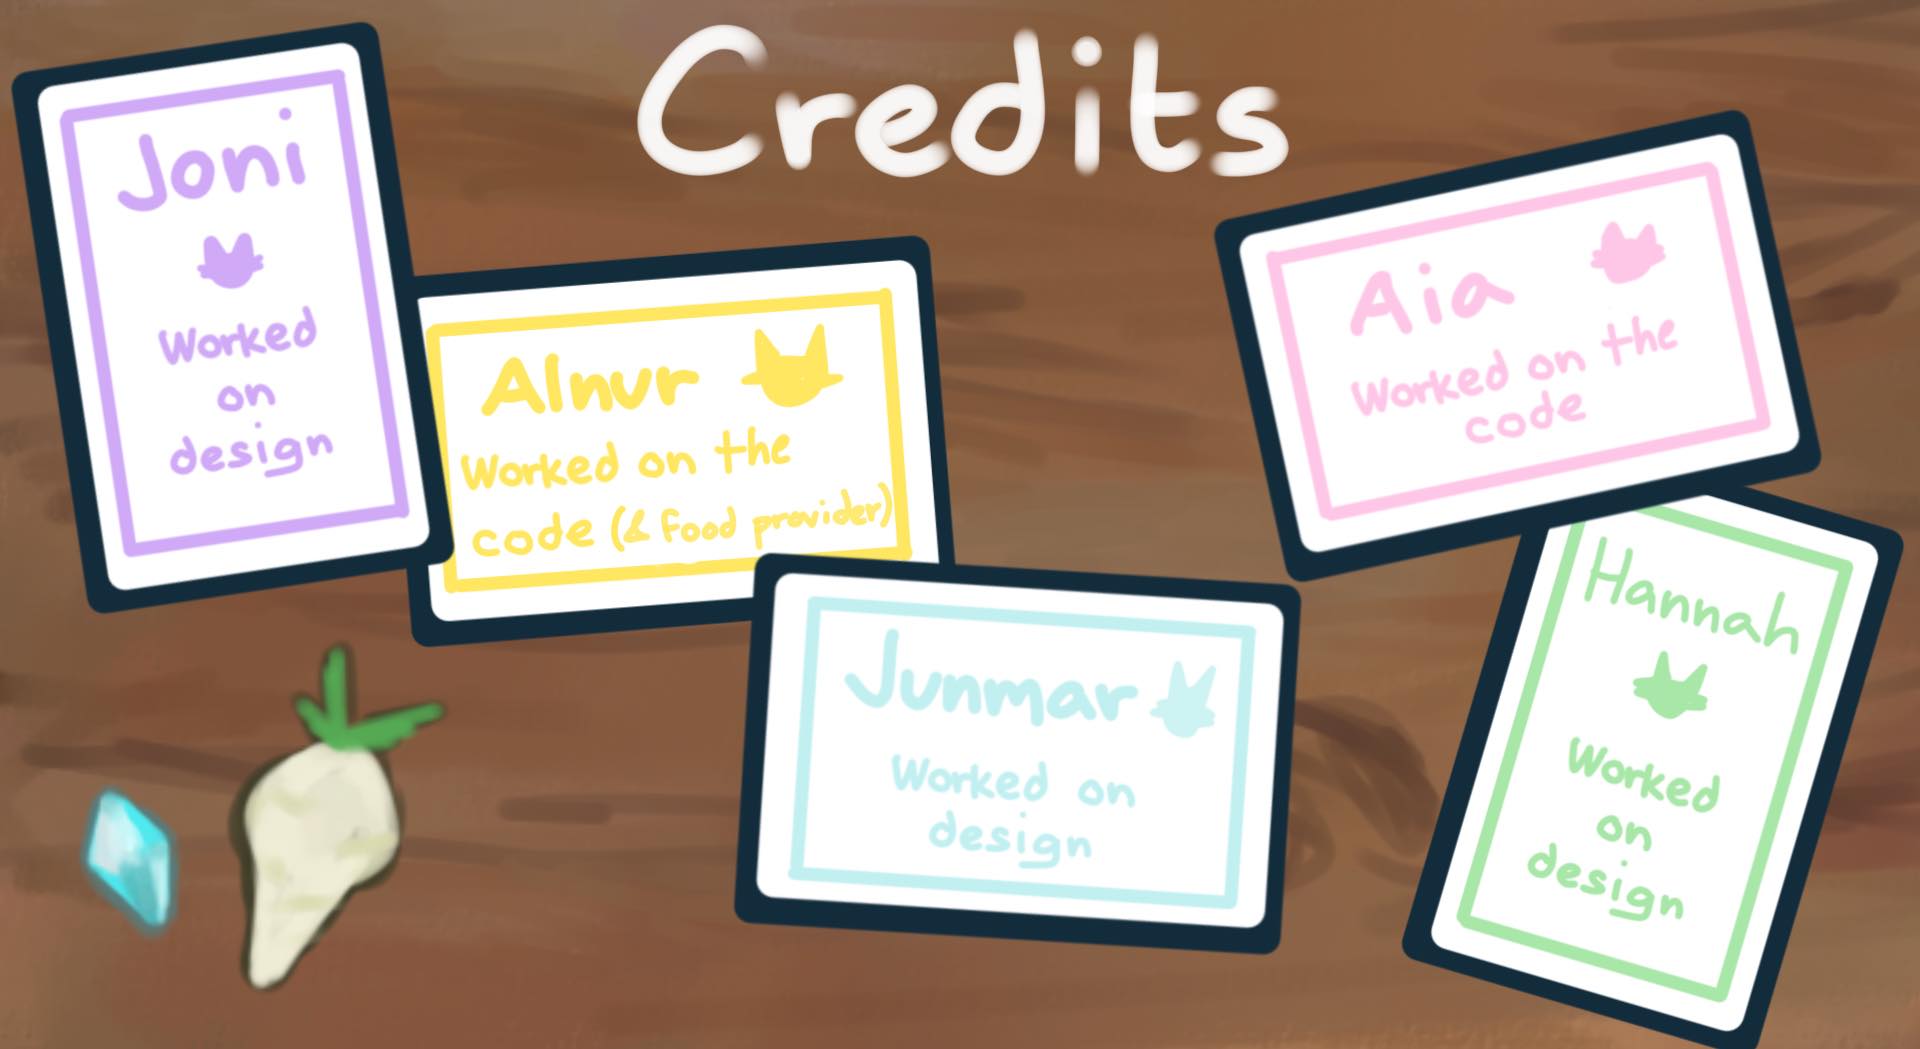 Credits
Joni
Worked
on
design
Alnur
Worked on the
code (& food provider)
Junmar
Worked on
design
Aia
Worked on the
code
Hannah
Worked
on
design